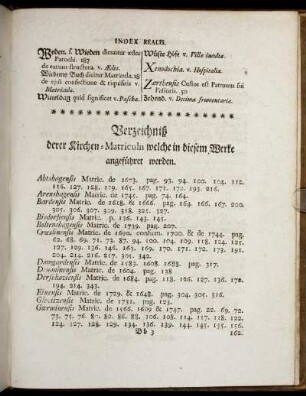 INDEX REALIS.
Weden. f. Wieden dicuntur ædes
Parochi. 187
de earum structura. v. Ædes.
Wiedeme Buch dicitur Matricula. 18
de ejus confectione & requisitis v.
Matricula.
quid significet v. Pastiba.
Wüste Höfe v. Villæ
Xenodochia. v. Hospitalia.
Custos est Patronus sui
Pastoris. 50
Zehend. v. Decimæ frumentariæ.
Verzeichniß
derer Kirchen-Matriculn welche in diesem Werke
angeführet werden.
Abtshagensis Matric. de 1673. pag. 93. 94. 100. 104. 112.
116. 127. 128. 129. 165. 167. 171. 172. 193. 216.
Arenshagensis Matric. de 1745. pag. 74. 164.
Bardensis Matric. de 1618. & 1666. pag. 164. 166. 167. 200.
305. 306. 307. 309. 318. 321. 327.
Bisdorfiensis Matric. p. 136. 143. 145.
Boltenhagensis Matric. de 1739. pag. 207.
Matric. de 1690. confirm. 1700. & de 1744. pag.
62. 68. 69. 71. 73. 87. 94. 100. 104. 109. 118. 124. 125.
127. 129. 136. 146. 163. 169. 170. 171. 172. 179. 191.
204. 214. 216. 217. 305. 342.
Damgardensis Matric. de 1583. 1608. 1685. pag. 317.
Matric. de 1604. pag. 118
Matric. de 1684. pag. 118. 126. 127. 136. 178.
194. 214. 343.
Elmensis Matric. de 1729. & 1648. pag. 304. 305. 316.
Matric. de 1731. pag. 123.
Matric. de 1566. 1609 & 1747. pag. 22. 69. 72.
73. 75. 76. 80. 82. 86. 88. 106. 108. 114. 117. 118. 122.
124. 127. 128. 129. 134. 136. 139. 144. 145. 155. 156.
Bb 3 162.